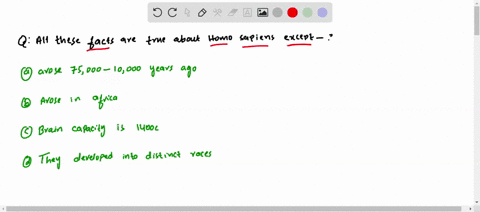 Q: All these facts are true about Homo sapiens except – ?
(a) arose 75,000 – 10,000 years ago
(b) Arose in africa
(c) Brain capacity is 1400c
(d) They developed into distinct races